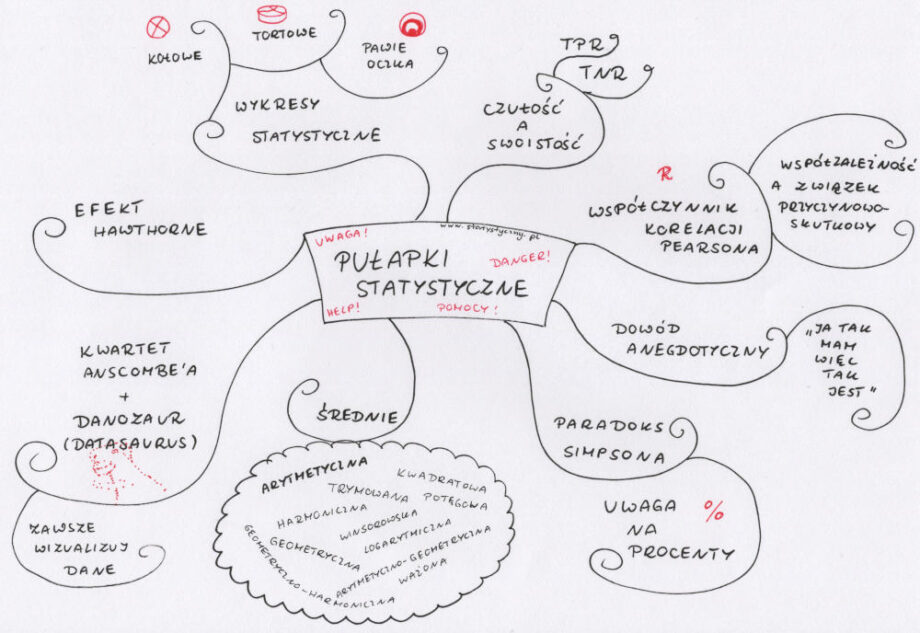 KOŁOWE
TORTOWE
PAWIE
OCZKA
WYKRESY
STATYSTYCZNE
TPR
TNR
CZUŁOŚĆ
A
SWOISTOŚĆ
R
WSPÓŁCZYNNIK
KORELACJI
PEARSONA
WSPÓŁZALEŻNOŚĆ
A ZWIĄZEK
PRZYCZYNOWO-
SKUTKOWY
EFEKT
HAWTHORNE
www.statystyczny.pl
UWAGA!
DANGER!
PUŁAPKI
STATYSTYCZNE
HELP!
POMOCY!
DOWÓD
ANEGDOTYCZNY
„JA TAK
MAM
WIĘC
TAK
JEST"
KWARTET
ANSCOMBE'A
+
DANOZAUR
(DATASAURUS)
ZAWSZE
WIZUALIZUJ
DANE
ŚREDNIE
ARYTMETYCZNA
KWADRATOWA
TRYMOWANA
POTĘGOWA
HARMONICZNA
WINSOROWSKA
LOGARYTMICZNA
GEOMETRYCZNA
ARYTMETYCZNO-GEOMETRYCZNA
WAŻONA
GEOMETRYCZNO-HARMONICZNA
PARADOKS
SIMPSONA
UWAGA %
NA
PROCENTY